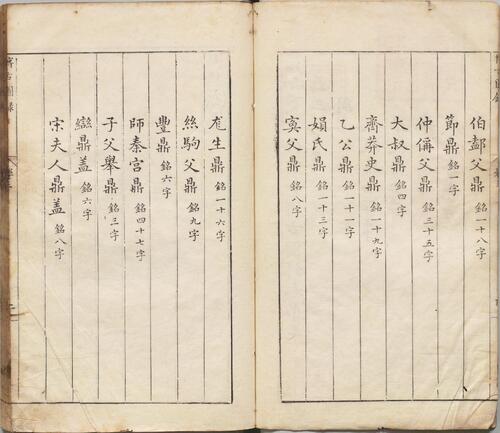 伯䵼父鼎 銘一十八字
節鼎 銘一字
仲偁父鼎 銘三十五字
大叔鼎 銘四字
齊莽史鼎 銘一十九字
乙公鼎 銘一十一字
娟氏鼎 銘一十三字
寞父鼎 銘八字
生鼎 銘一十六字
絲駒父鼎 銘九字
豐鼎 銘六字
師秦宮鼎 銘四十七字
子父舉鼎 銘三字
鼎蓋 銘六字
宋夫人鼎蓋 銘八字